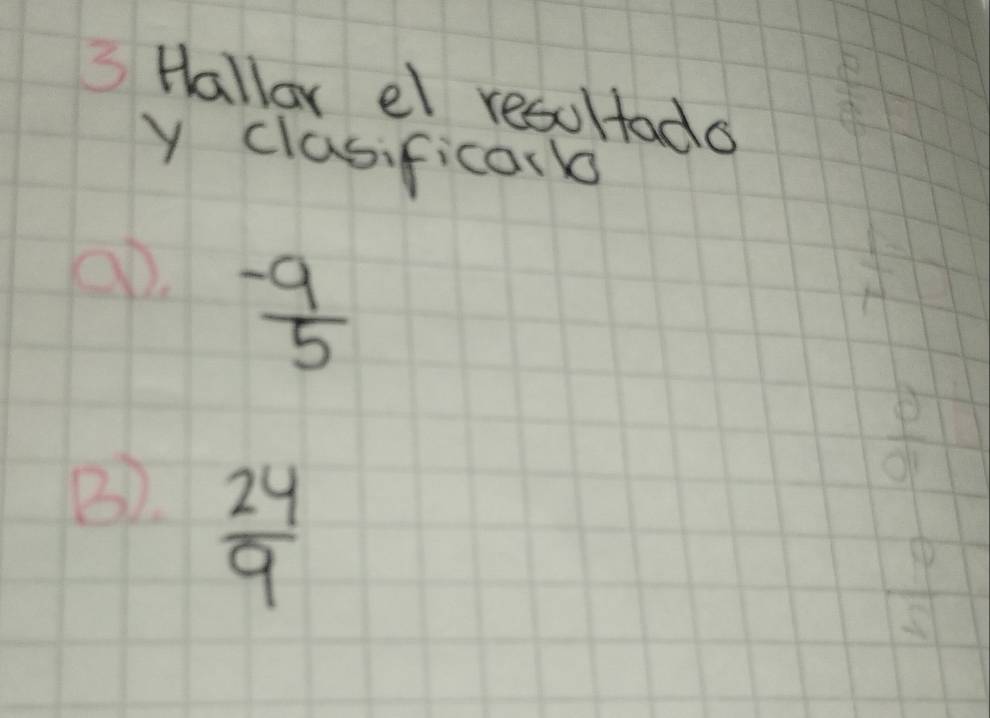 3 Hallar el resultado
y clasificarlo
a). -9/5
B). 24/9